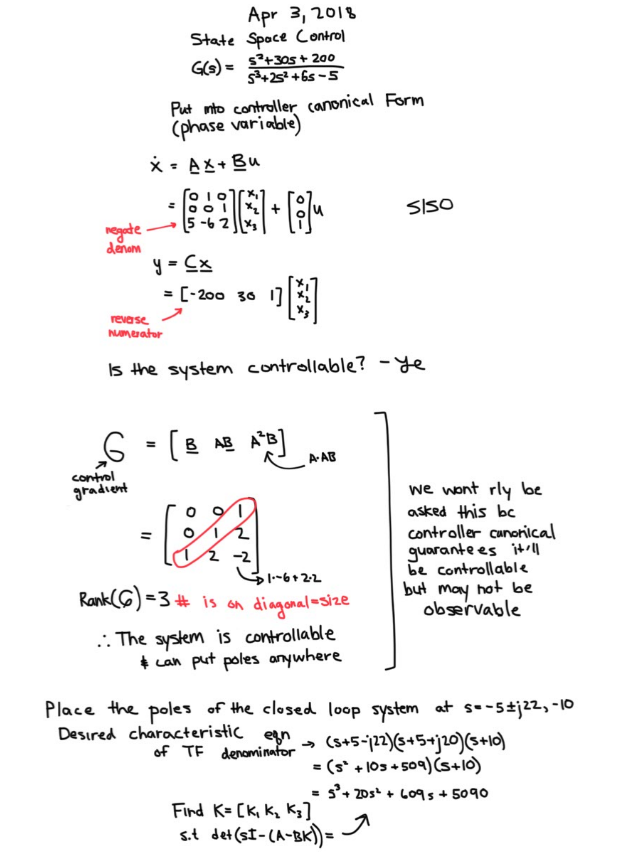 Apr 3, 2018
State Space Control
G(s) = (s²+30s+200)/(s³+2s²+6s-5)
Put into controller canonical Form
(phase variable)
ẋ = A x + B u
= [0 1 0; 0 0 1; 5 -6 2] [x₁; x₂; x₃] + [0; 0; 1] u
SISO
negate
denom
y = C x
= [-200 30 1] [x₁; x₂; x₃]
reverse
numerator
Is the system controllable? - ye
G = [B AB A²B]
A·AB
control
gradient
= [0 0 1; 0 1 2; 1 2 -2]
1·-6+2·2
Rank(G) = 3 # is on diagonal=size
∴ The system is controllable
& can put poles anywhere
we wont rly be
asked this bc
controller canonical
guarantees it'll
be controllable
but may not be
observable
Place the poles of the closed loop system at s=-5±j22,-10
Desired characteristic eqn
of TF denominator → (s+5-j22)(s+5+j20)(s+10)
= (s² + 10s + 509)(s+10)
= s³ + 20s² + 609s + 5090
Find K=[K₁ K₂ K₃]
s.t det(sI-(A-BK))=